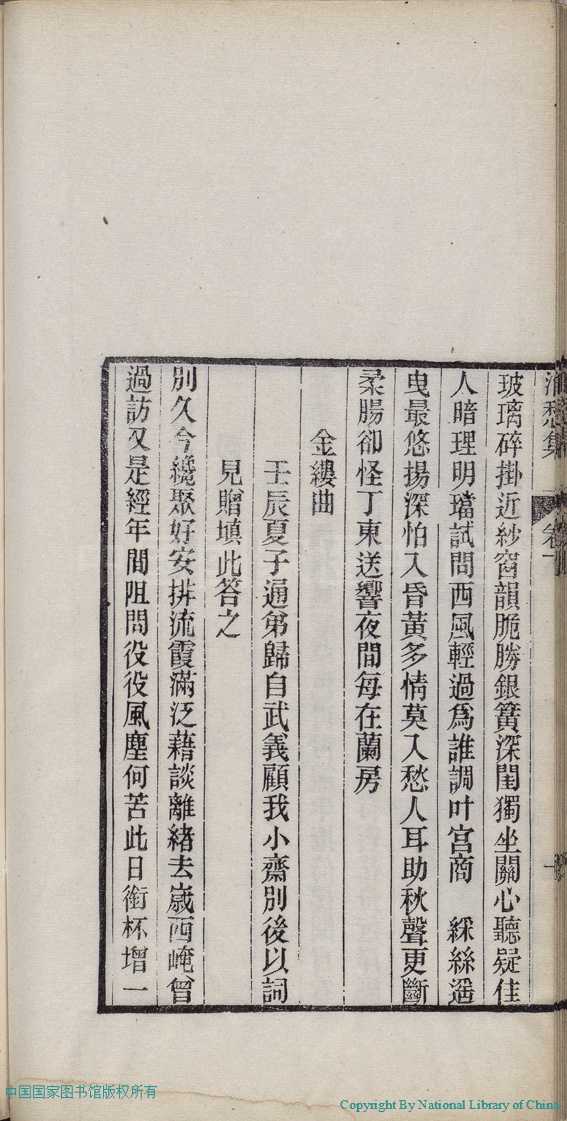 愁集
卷一
玻璃碎掛近紗窗韻脆勝銀簧深閨獨坐關心聽疑佳
人暗理明璫試問西風輕過爲誰調叶宮商　綵絲遥
曳最悠揚深怕入昏黃多情莫入愁人耳助秋聲更斷
柔腸卻怪丁東送響夜間每在蘭房
金縷曲
壬辰夏子通弟歸自武義顧我小齋別後以詞
見贈填此答之
別久今纔聚好安排流霞滿泛藉談離緒去歲西崦曾
過訪又是經年間阻問役役風塵何苦此日銜杯增一
中国国家图书馆版权所有
Copyright By National Library of China